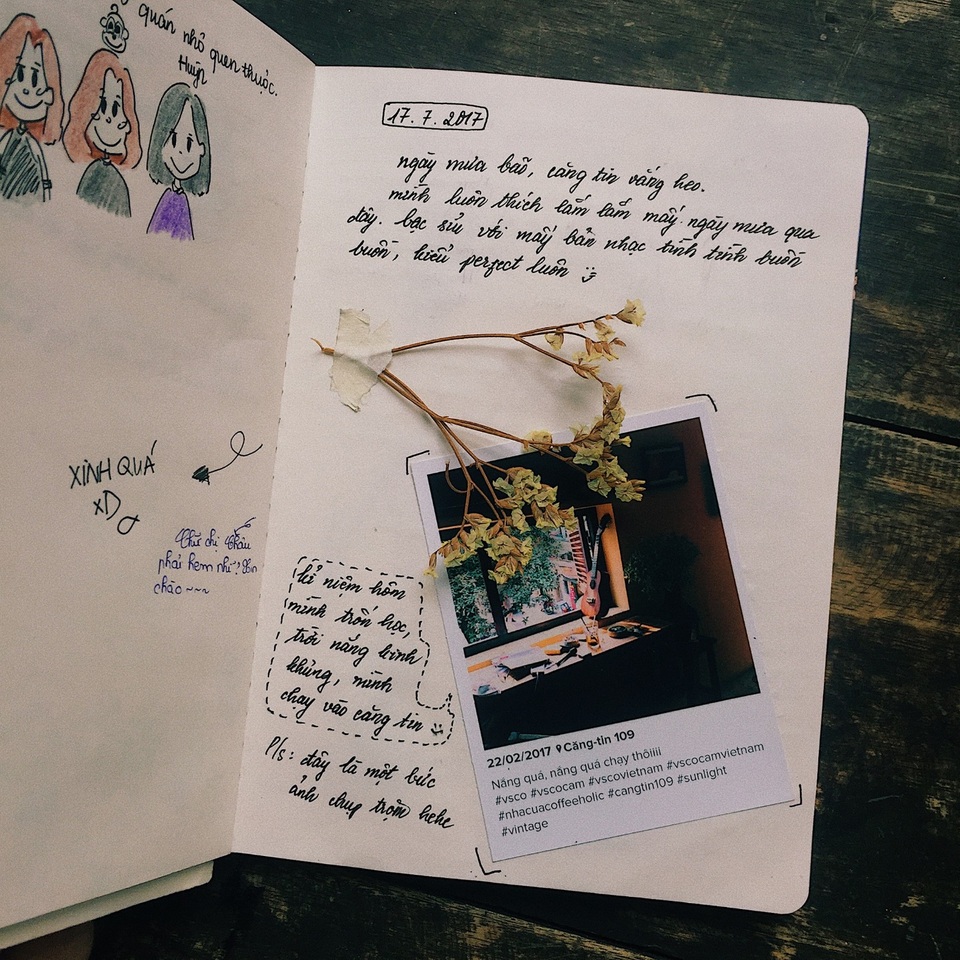 quán nhỏ quen thuộc.
Huỳn
XINH QUÁ
xD
Chữ chị Châu
phải hem nhỉ? Xin
chào ~~~
17.7.2017
ngày mưa bão, căng tin vắng heo.
mình luôn thích lắm lắm mấy ngày mưa qua
đây. bạc sỉu với mấy bản nhạc tình tình buồn
buồn, kiểu perfect luôn
kỉ niệm hôm
mình trốn học,
trời nắng kinh
khủng, mình
chạy vào căng tin
P/s: đây là một bức
ảnh chụp trộm hehe
22/02/2017 Căng-tin 109
Nắng quá, nắng quá chạy thôiiii
#vsco #vscocam #vscovietnam #vscocamvietnam
#nhacuacoffeeholic #cangtin109 #sunlight
#vintage